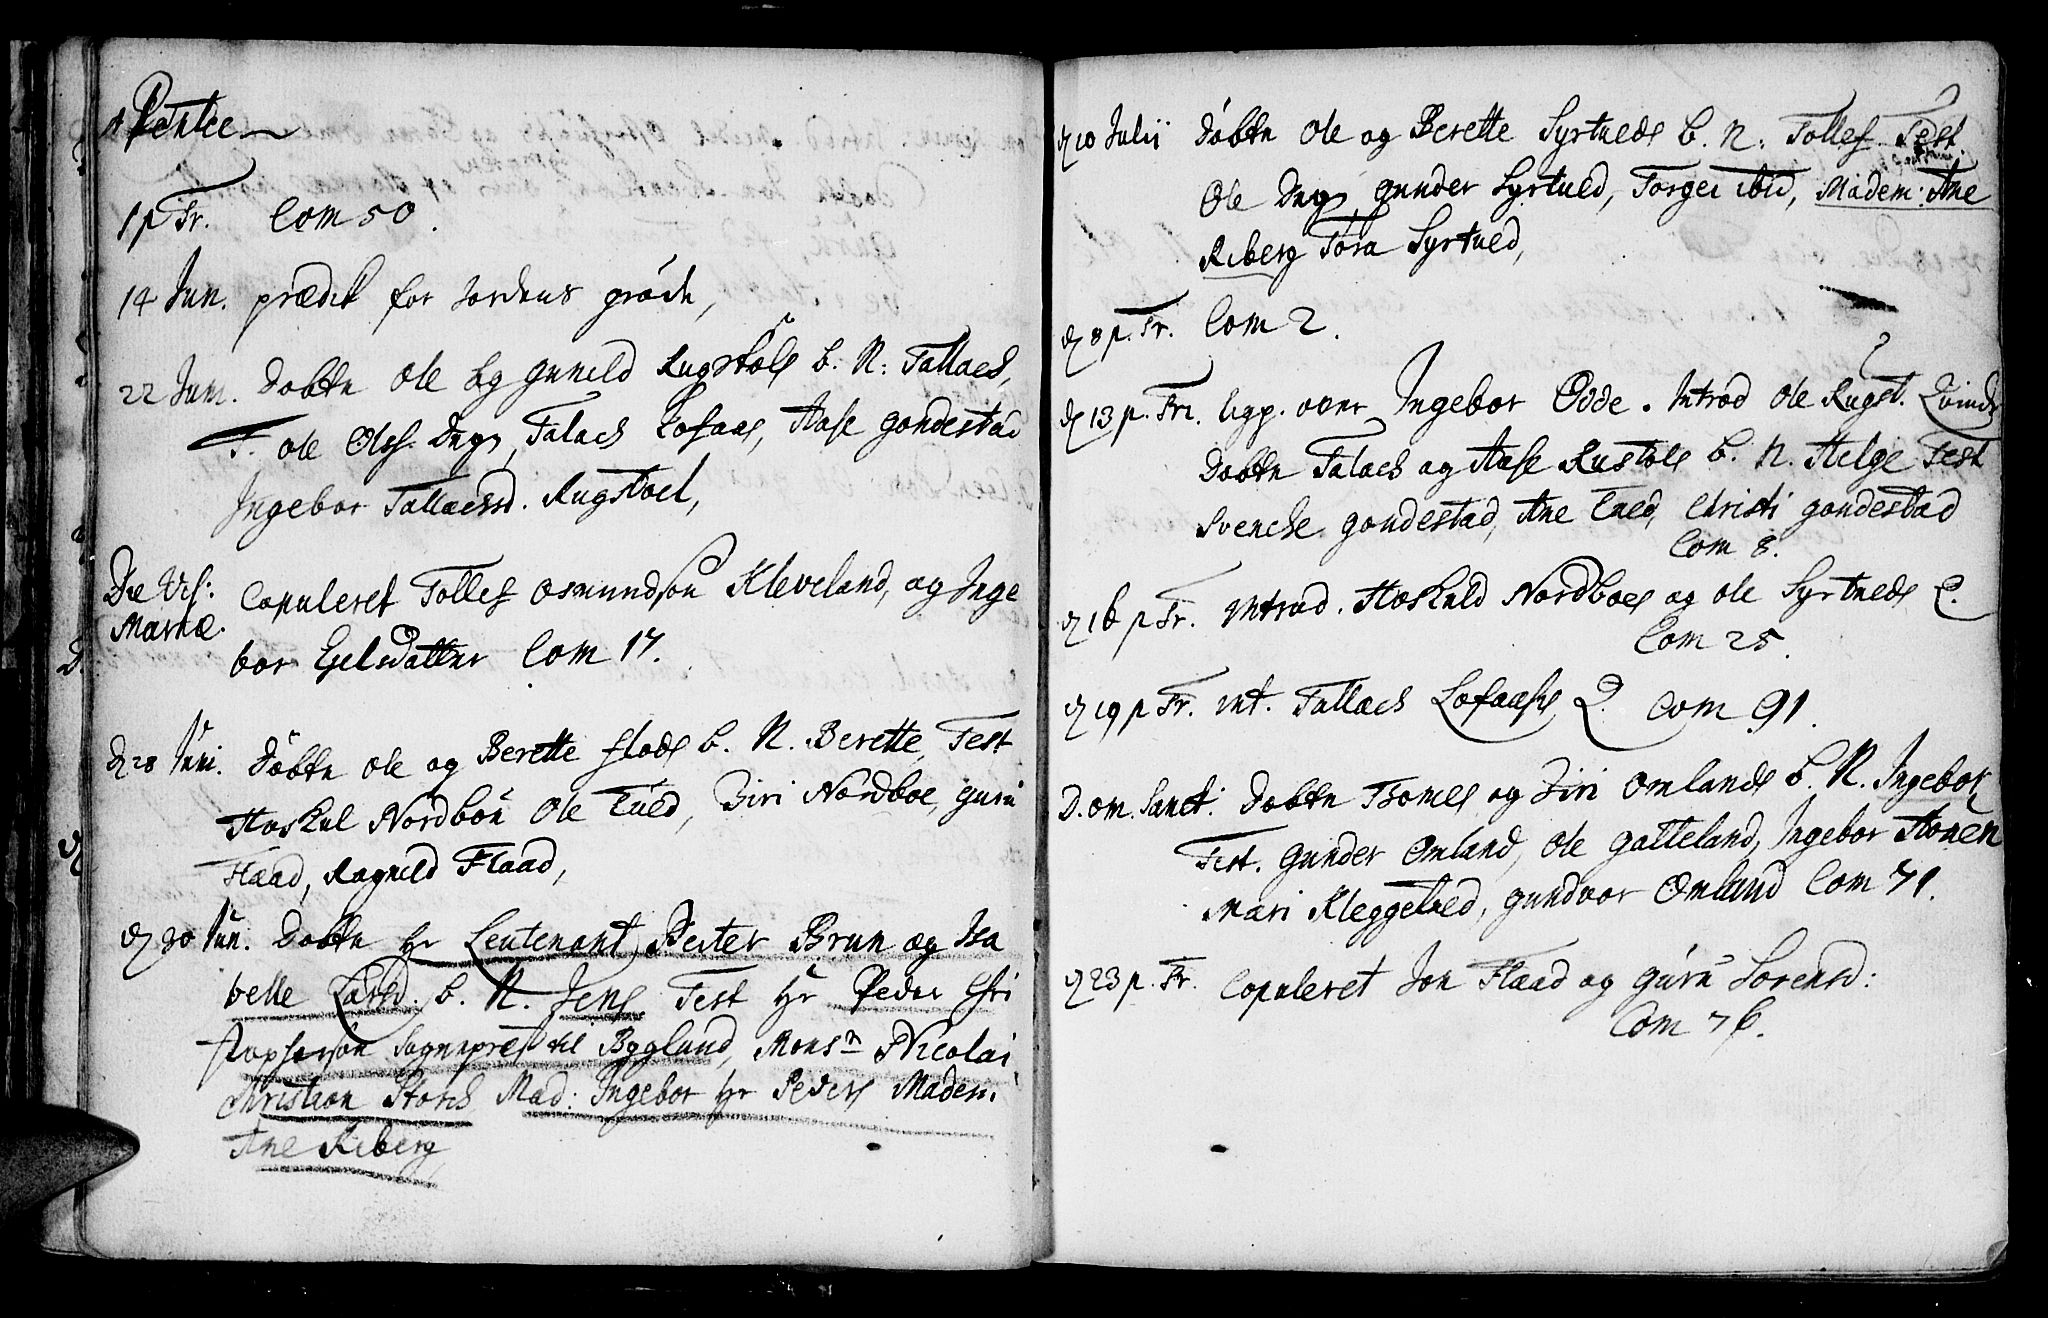 Pentec
1 p Tr. Com 50.
14 Jun. prædik for Jordens grøde,
22 Jun. Døbte Ole og Guneld Rugstøls b. N. Tallach,
T. Ole Olss. Dags, Talach Løfaas, Aase gondestad
Ingebor Tallachsd. Rugstøel,
Die Vis: Copuleret Tollef Osmundsøn Kleveland, og Inge
Mariæ. bor Egelsdatter Com 17.
D 28 Juni. Døbte Ole og Berette Flods b. N. Berette, Test
Hoskul Nordbøn Ole Tued, Siri Nordboe, Guru
Flaad, Ragneld Flaad,
D 30 Jun. Døbte Hr Leutenant Peiter Brun og Isa
belle Larsd. b. N. Jens Test Hr Peder Chri
stophersøn Sognepres til Bygland, Monsr Nicolai
Christian Storch Mad: Ingebor Hr Peders Madem.
Ane Riberg
D 10 Julii Døbte Ole og Berette Syrtveds b. N. Tollef Test.
Ole Dag, Gunder Syrtved, Torgei ibid, Madem: Ane
Riberg Tora Syrtved,
D 8 p. Tr. Com 2.
D 13 p. Tri. ligp. over Ingebor Odde. Introd Ole Rugst. Qvinde
Døbte Talach og Aase Rustøls b. N. Helge Test
Svenche gondestad, Ane Tued, Christi gondestad
Com 8.
D 16 p Tr. Introd. Hoskuld Nordboes og Ole Syrtveds Q.
Com 25.
D 19 p Tr. int. Tallach Løfaases Q. Com 91.
D. om. Sanct. Døbte Tomes og Siri Omlands b. N. Ingebor,
Test. Gunder Omland, Ole Gatteland, Ingebor Honen
Mari Kleggetved, Gundvor Omland Com 71.
D 23 p. Tr. Copuleret Jon Flaad og Guru Sorensd:
Com 76.